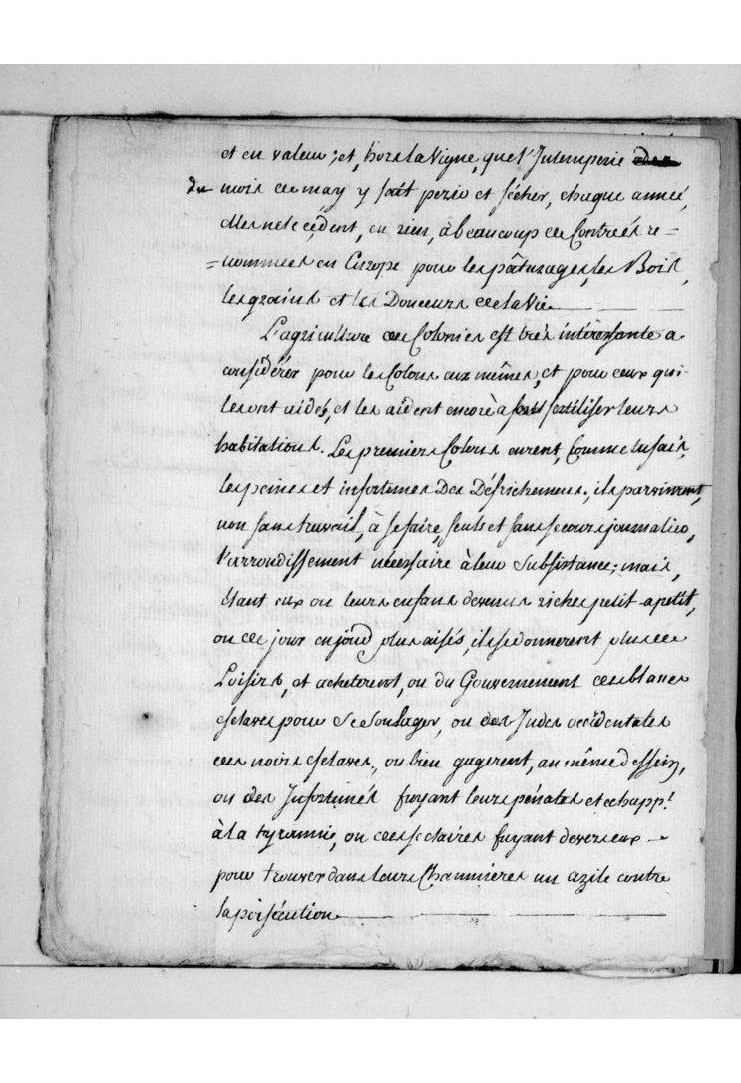 et en valeur; et, hors la Vigne, que l'Intemperie
du mois de may y fait perir et sécher, chaque année,
elles ne le cédent, en rien, à beaucoup de Contrées re=
=nommées en Europe pour les pâturages, les Bois,
les grains et les Douceurs de la Vie
L'agriculture des Colonies est très intéressante a
considérer pour les Colons eux mêmes, et pour ceux qui
les ont aidés, et les aident encore à fertiliser leurs
habitations. Les premiers Colons eurent, Comme tu sais,
les peines et infortunes Des Défrichemens; ils parvinrent,
non sans travail, à se faire, seuls et sans secours journaliers,
l'arrondissement nécessaire à leur Subsistance; mais,
étant eux ou leurs enfans devenus riches petit-a petit,
ou de jour en jour plus aisés, ils se donnerent plus de
Loisirs, et acheterent, ou du Gouvernement des blancs
esclaves pour Se Soulager, ou des Indes occidentales
des noirs esclaves, ou bien gagerent, au même dessein,
ou des Infortunés fuyant leurs pénates et echapp.t
à la tyrannie, ou des sectaires fuyant devers eux
pour trouver dans leurs Chaumieres un azile contre
la persécution